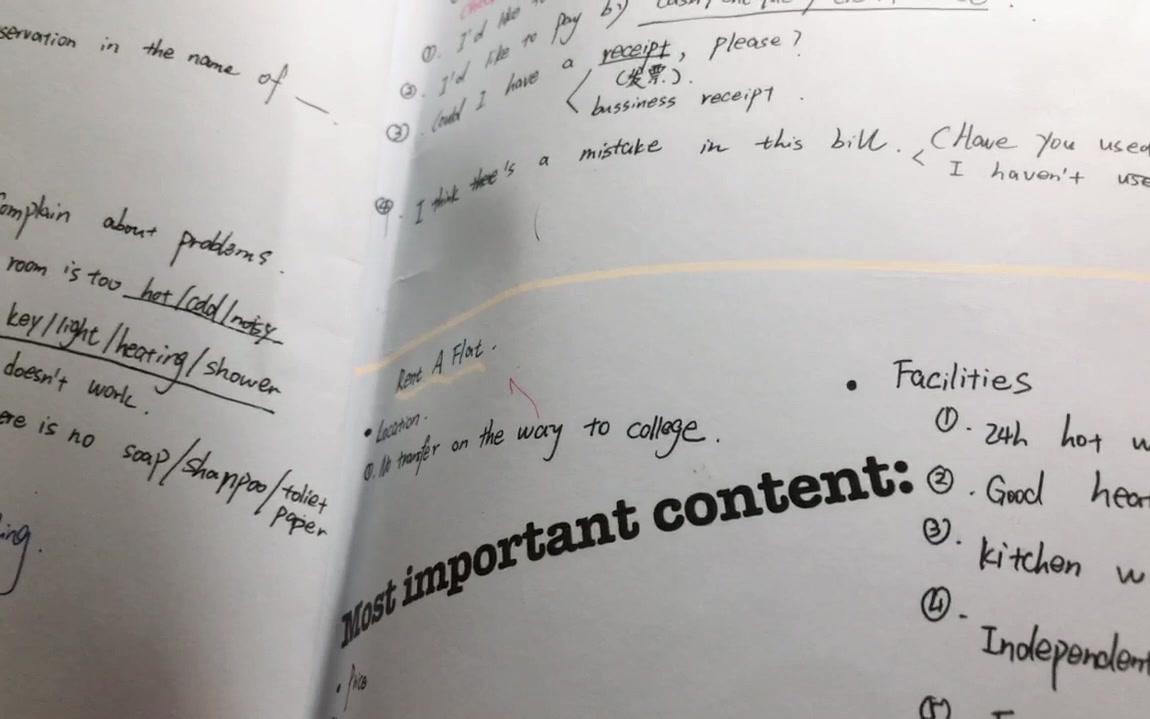 servation in the name of
complain about problems.
room is too hot/cold/noisy
key/light/heating/shower
doesn't work.
ere is no soap/shanpoo/toliet
paper
ing.
①. I'd like to
②. I'd like to pay by
③. Could I have a receipt, please?
(发票).
bussiness receipt.
④. I think thee's a mistake in this bill. (Have you used
I haven't use
Rent A Flat.
• Location.
①. No transfer on the way to college.
Most important content:
• Price
• Facilities
①. 24h hot w
②. Good hea
③. kitchen w
④. Independent
⑤.